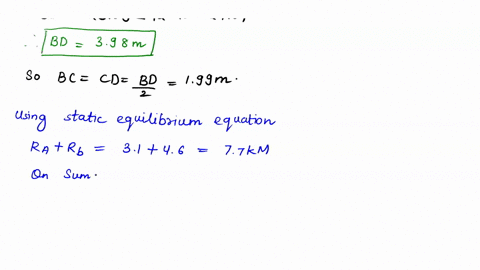 ∴ BD = 3.98m
So BC = CD = BD/2 = 1.99m.
Using static equilibrium equation
RA + Rb = 3.1 + 4.6 = 7.7 kM
On Sum.